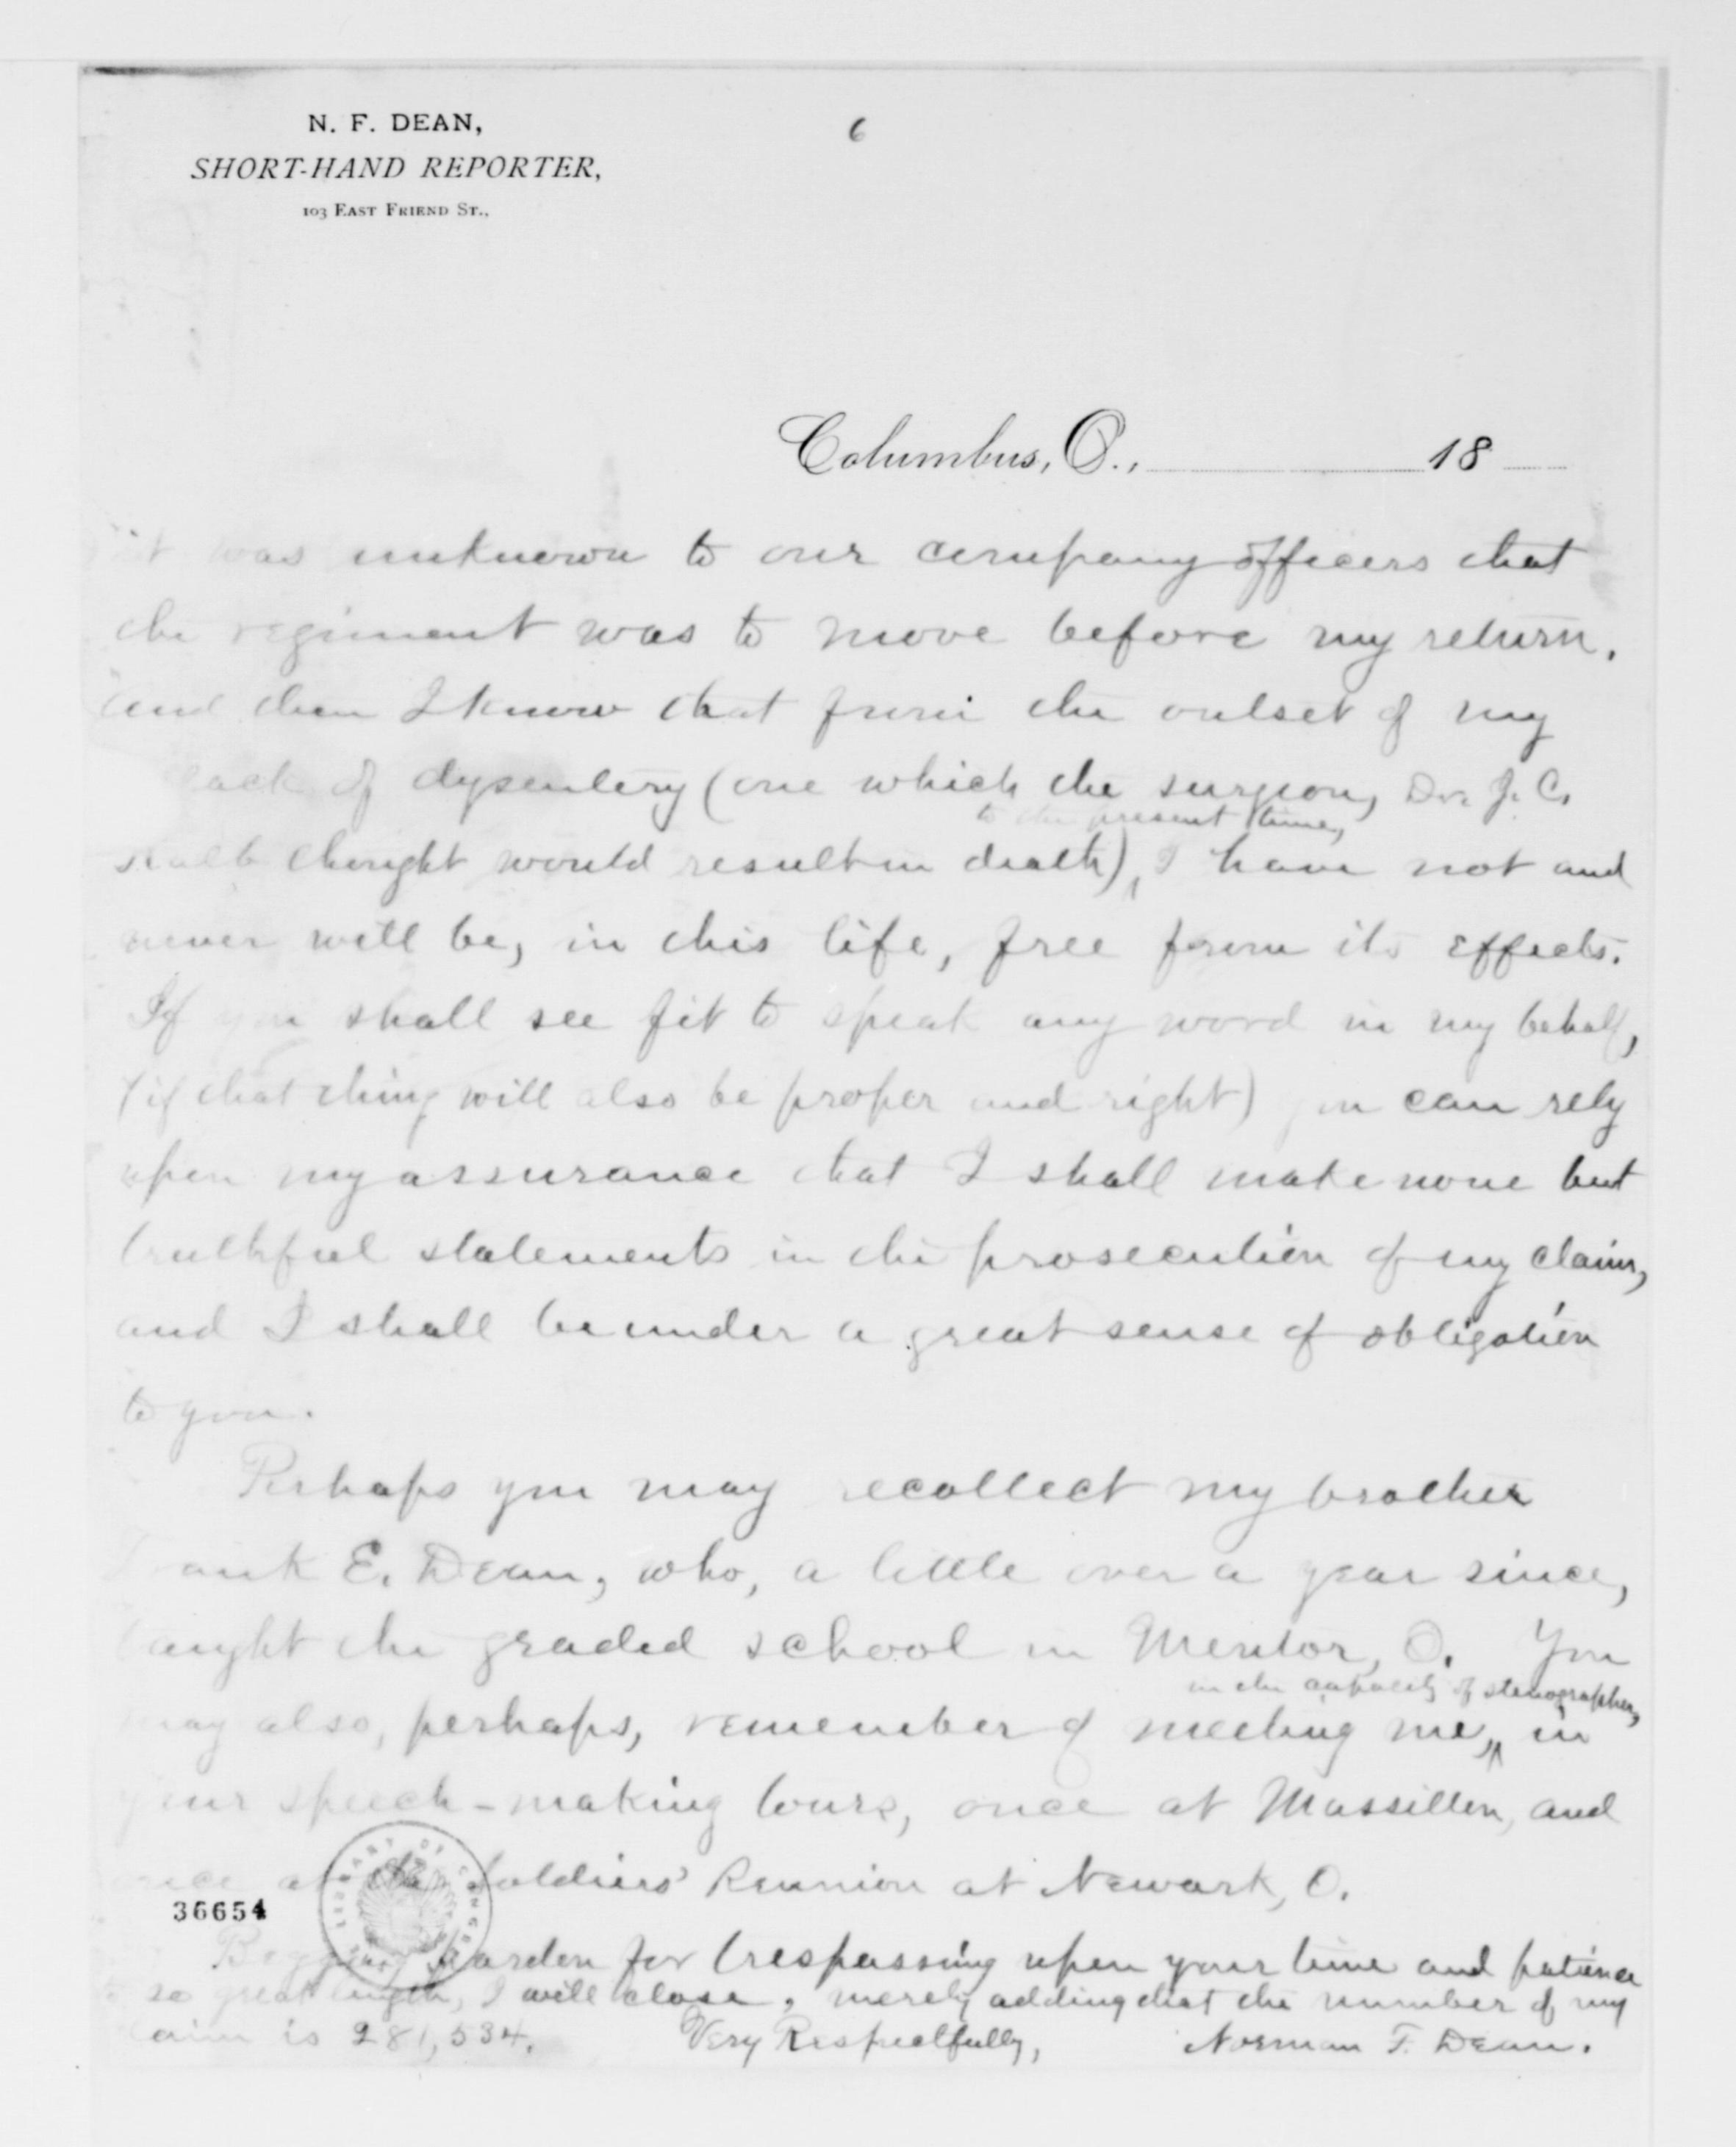 N. F. DEAN,
6
SHORT-HAND REPORTER,
103 EAST FRIEND ST.,
Columbus, O., 18
it was unknown to our company officers that
the regiment was to move before my return.
and then I know that from the outset of my
tack of dysentery (one which the surgeon, Dr. J. C.
to the present time,
thought would result in death), I have not and
never will be, in this life, free from its effects.
If you shall see fit to speak any word in my behalf,
(if that thing will also be proper and right) you can rely
upon my assurance that I shall make none but
truthful statements in the prosecution of my claim,
and I shall be under a great sense of obligation
to you.
Perhaps you may recollect my brother
Frank E. Dean, who, a little over a year since,
taught the graded school in Mentor, O. You
in the capacity of stenographer,
may also, perhaps, remember of meeting me, in
your speech-making tours, once at Massillon, and
once at the Soldiers' Reunion at Newark, O.
LIBRARY OF CONGRESS
36654
Begging pardon for trespassing upon your time and patience
to so great length, I will close, merely adding that the number of my
claim is 281,534. Very Respectfully, Norman F. Dean.